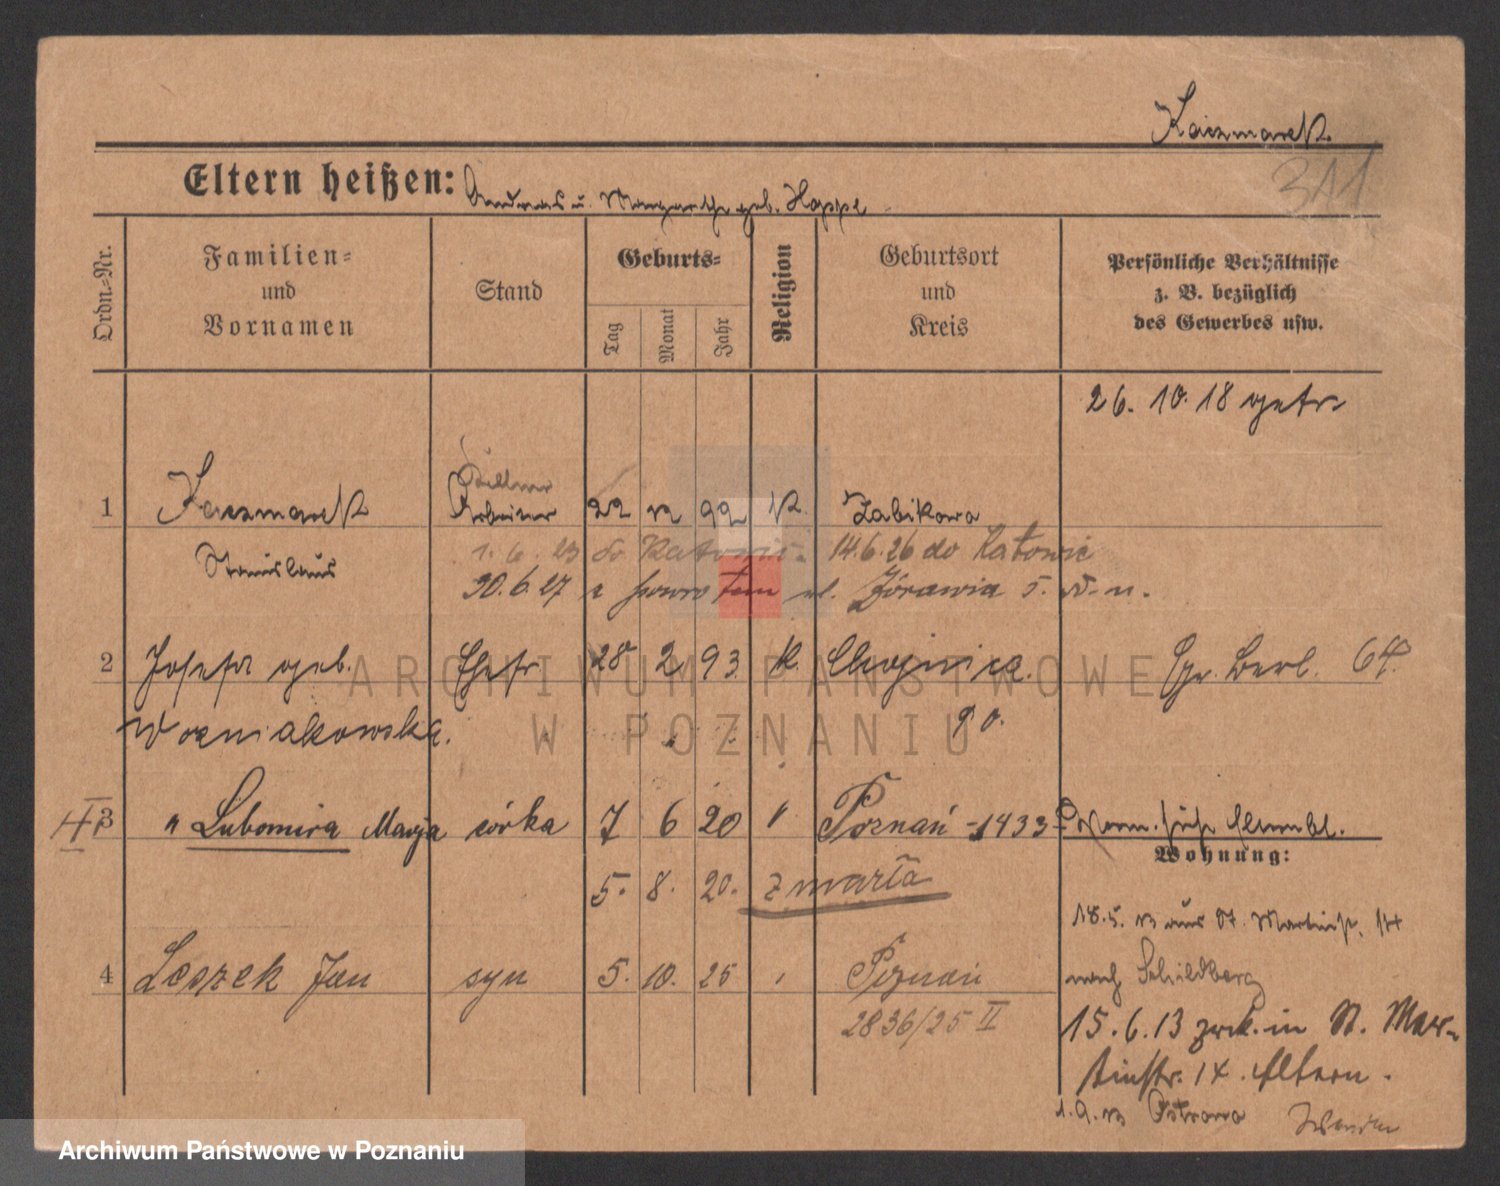 Kaczmarek
Eltern heißen: Andreas u. Margarethe geb. Hoppe
311
Ordn.-Nr.
Familien- und Vornamen
Stand
Geburts-
Tag
Monat
Jahr
Religion
Geburtsort und Kreis
Persönliche Verhältnisse
z. B. bezüglich
des Gewerbes usw.
26. 10. 18 getr.
1 Kaczmarek Arbeiter 22 92 K. Zabikowo
Stanislaus
1. 6. 23 do Katowic. 14.6.26 do Katowic
30.6.27 z powrotem ul. Żórawia 5.
2 Josefa geb. Ehefr 28 2 93 K. Chojnica. 64.
Wozniakowska.
3 " Lubomira Marja córka 7 6 20 " Poznań - 1433 -
Wohnung:
5. 8. 20. zmarła
18.5. 13 aus St. Martinstr. 14
4 Leszek Jan syn 5. 10. 25 Poznań
nach Schildberg
2836/25 II
15. 6. 13 zrck. in St. Mar-
tinstr. 14. Eltern.
1. 9. 13 Ostrowo
ARCHIWUM PAŃSTWOWE
W POZNANIU
Archiwum Państwowe w Poznaniu